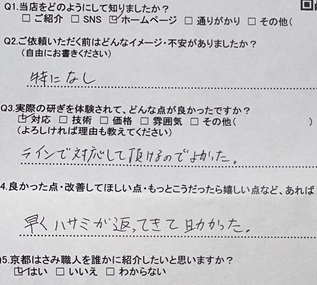 Q1.当店をどのようにして知りましたか？
□ ご紹介 □ SNS ☑ ホームページ □ 通りがかり □ その他(
Q2.ご依頼いただく前はどんなイメージ・不安がありましたか？
(自由にお書きください)
特になし
Q3.実際の研ぎを体験されて、どんな点が良かったですか？
☑ 対応 □ 技術 □ 価格 □ 雰囲気 □ その他( )
(よろしければ理由も教えてください)
ラインで対応して頂けるのでよかった。
4.良かった点・改善してほしい点・もっとこうだったら嬉しい点など、あれば
早くハサミが返ってきて助かった。
Q5.京都はさみ職人を誰かに紹介したいと思いますか？
☑ はい □ いいえ □ わからない